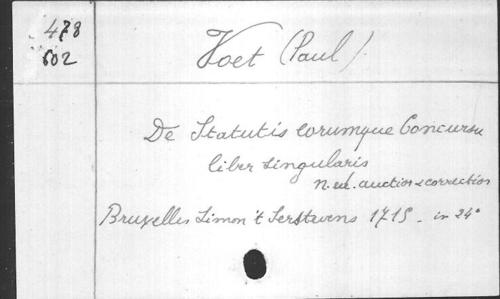 478
602
Voet (Paul).
De Statutis eorumque Concursu
liber singularis
n. ed. auctior & correctior
Bruxelles Simon 't Serstevens 1715 - in 24°